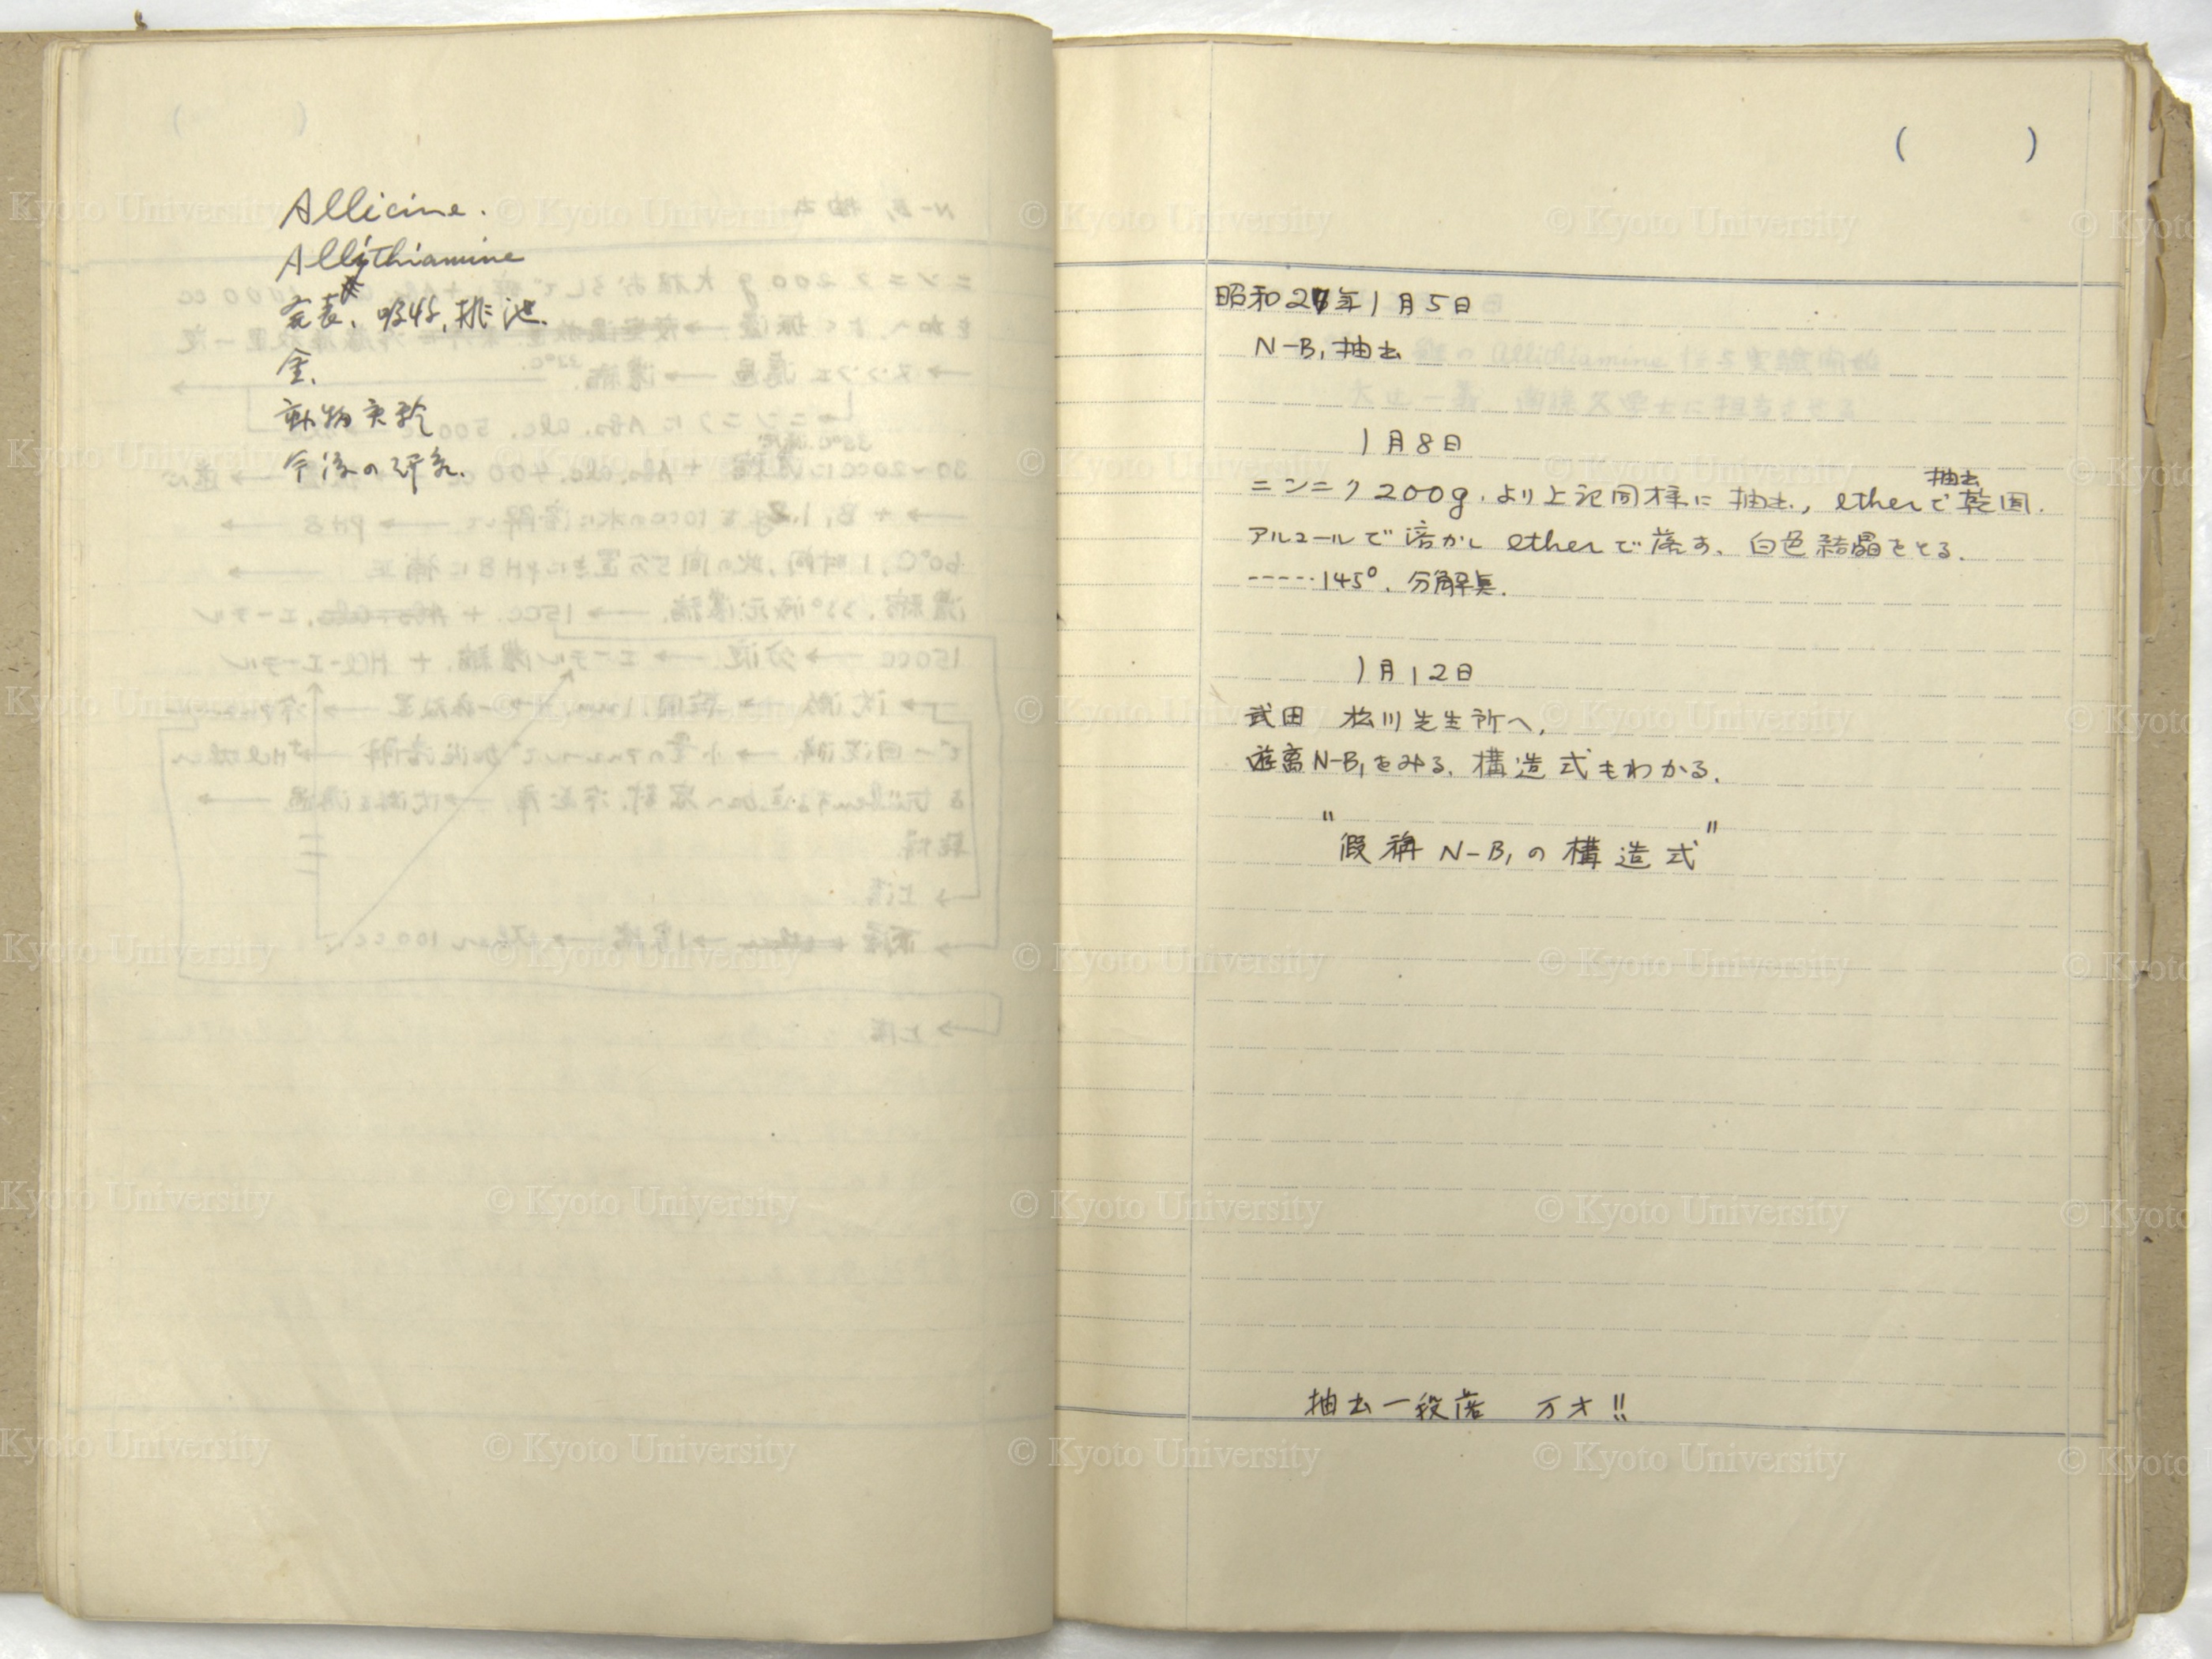 Allicine.
Allithiamine
発表、吸収、排泄.
金.
動物実験
今後の研究.
(　　)
昭和27年1月5日
N-B₁抽出
1月8日
抽出
ニンニク 200g. より上記同様に 抽出, etherで乾固.
アルコールで溶かし etherで落す、白色結晶をとる.
-----145°. 分解点.
1月12日
武田 松川先生所へ.
遊离N-B₁をみる. 構造式もわかる.
"假稱 N-B₁の構造式"
抽出一段落 万才!!
© Kyoto University